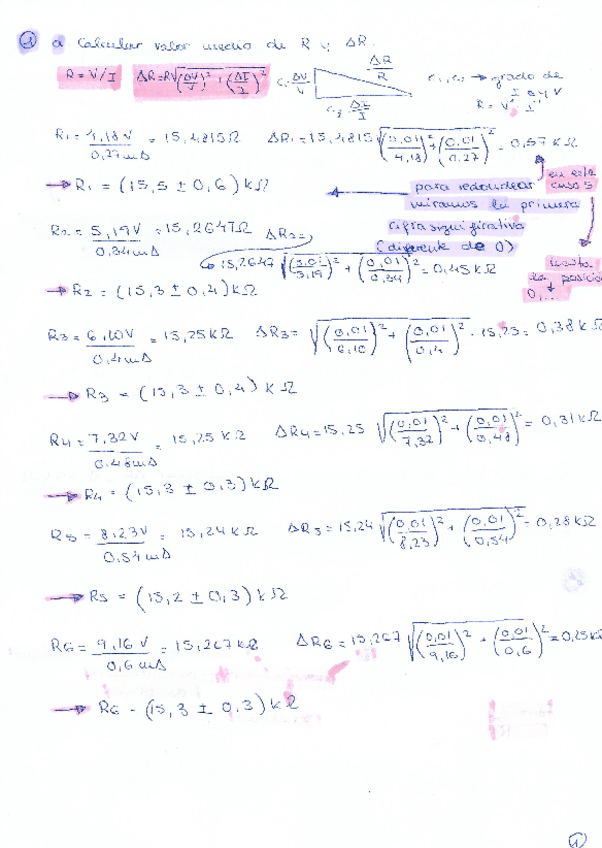 ① a Calcular valor medio de R y ΔR.
R = V/I ΔR=R√(ΔV/V)²+(ΔI/I)² C₁ ΔV/V ΔR/R C₂ ΔI/I C₁, C₂ → grado de
I e y V
R = V¹ I⁻¹
R₁ = 4,18V / 0,27mA = 15,4815Ω ΔR₁ = 15,4815 √(0,01/4,18)²+(0,01/0,27)² = 0,57 KΩ
→ R₁ = (15,5 ± 0,6) kΩ
para redondear
miramos la primera
cifra significativa
(diferente de 0)
en este
caso 5
de posición
0,...
R₂ = 5,19V / 0,34mA = 15,2647Ω ΔR₂=
15,2647 √(0,01/5,19)² + (0,01/0,34)² = 0,45 KΩ
→ R₂ = (15,3 ± 0,4) kΩ
R₃ = 6,10V / 0,4mA = 15,25kΩ ΔR₃= √(0,01/6,10)² + (0,01/0,4)² · 15,25 = 0,38 KΩ
→ R₃ = (15,3 ± 0,4) kΩ
R₄ = 7,32V / 0,48mA = 15,25 kΩ ΔR₄ = 15,25 √(0,01/7,32)² + (0,01/0,48)² = 0,31 KΩ
→ R₄ = (15,3 ± 0,3) kΩ
R₅ = 8,23V / 0,54mA = 15,24 kΩ ΔR₅ = 15,24 √(0,01/8,23)² + (0,01/0,54)² = 0,28 KΩ
→ R₅ = (15,2 ± 0,3) kΩ
R₆ = 9,16 V / 0,6mA = 15,267kΩ ΔR₆ = 15,267 √(0,01/9,16)² + (0,01/0,6)² = 0,25kΩ
→ R₆ - (15,3 ± 0,3) kΩ
①